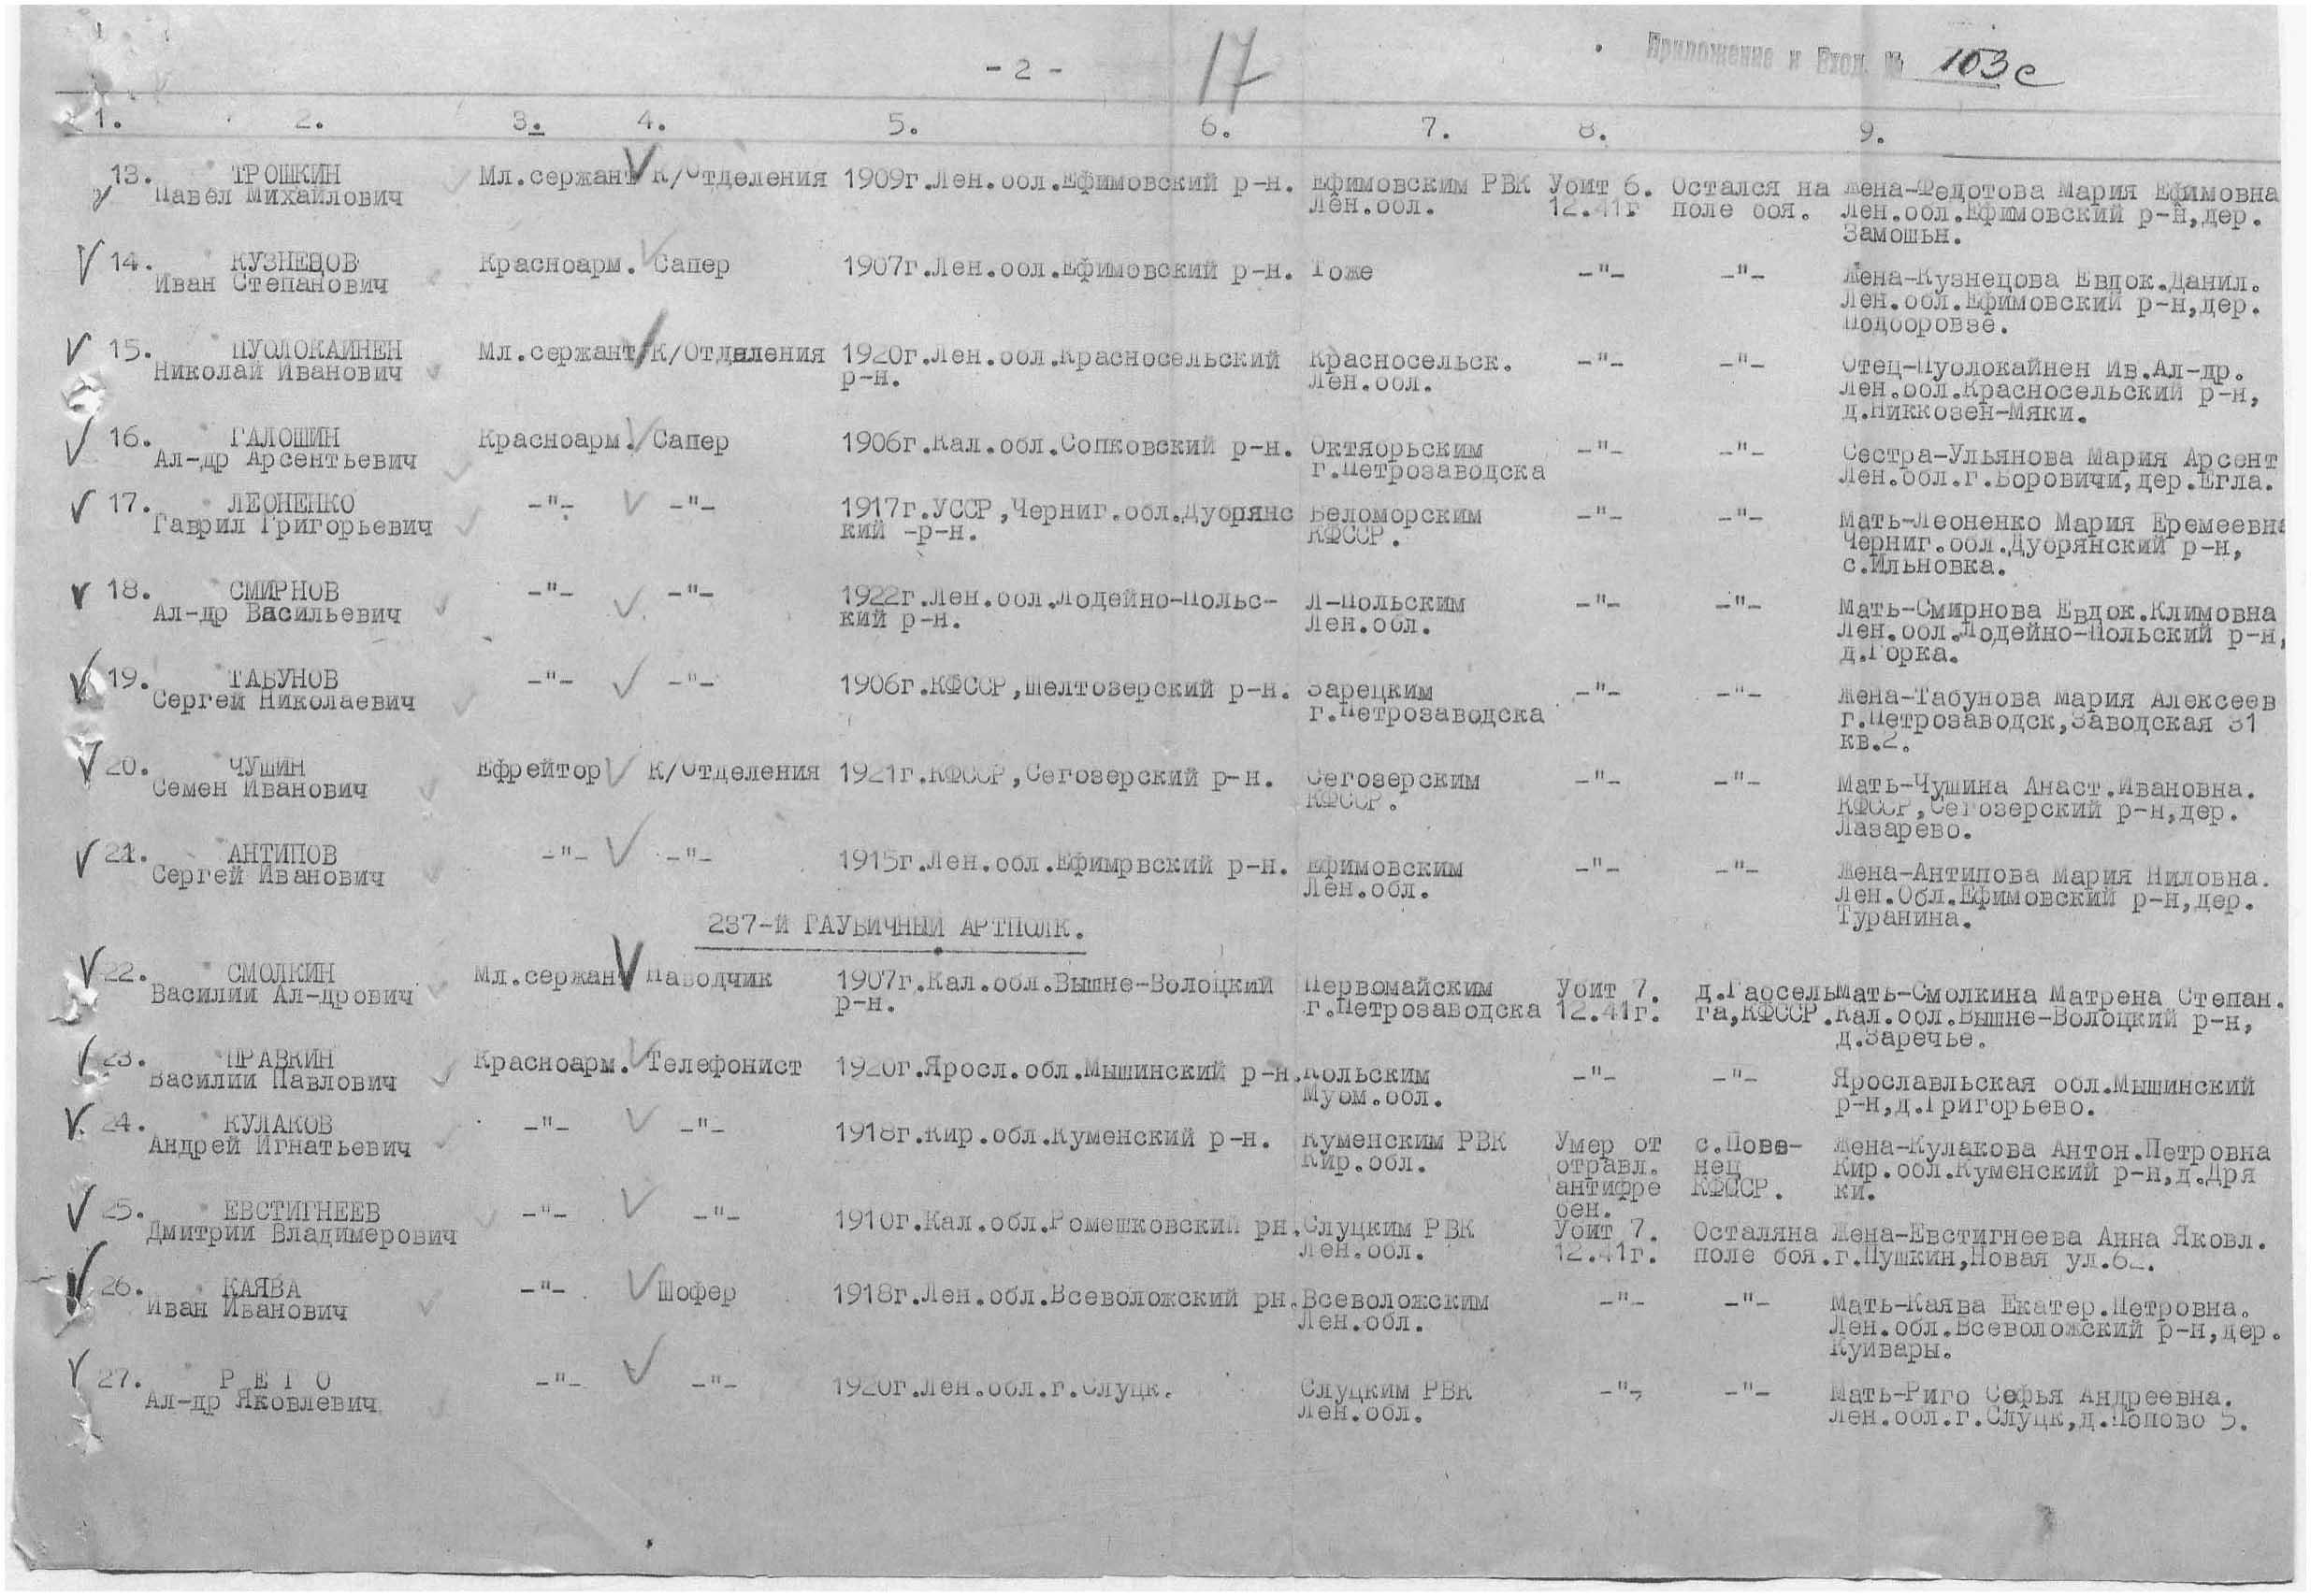 - 2 -
17
Приложение к Вход. № 103с
1. 2. 3. 4. 5. 6. 7. 8. 9.
13. ТРОШКИН Мл.сержант К/Отделения 1909г.Лен.обл.Ефимовский р-н. Ефимовским РВК Убит 6. Остался на Жена-Федотова Мария Ефимовна
Павел Михайлович Лен.обл. 12.41г поле боя. Лен.обл.Ефимовский р-н,дер.
Замошьн.
14. КУЗНЕЦОВ Красноарм. Сапер 1907г.Лен.обл.Ефимовский р-н. Тоже -"- -"- Жена-Кузнецова Евдок.Данил.
Иван Степанович Лен.обл.Ефимовский р-н,дер.
Подборовзе.
15. ПУОЛОКАЙНЕН Мл.сержант К/Отделения 1920г.Лен.обл.Красносельский Красносельск. -"- -"- Отец-Пуолокайнен Ив.Ал-др.
Николай Иванович р-н. Лен.обл. Лен.обл.Красносельский р-н,
д.Никкозен-Мяки.
16. ГАЛОШИН Красноарм. Сапер 1906г.Кал.обл.Сопковский р-н. Октябрьским -"- -"- Сестра-Ульянова Мария Арсент
Ал-др Арсентьевич г.Петрозаводска Лен.обл.г.Боровичи,дер.Егла.
17. ЛЕОНЕНКО -"- -"- 1917г.УССР,Черниг.обл.Дубрянс Беломорским -"- -"- Мать-Леоненко Мария Еремеевна
Гаврил Григорьевич кий -р-н. КФССР. Черниг.обл.Дубрянский р-н,
с.Ильновка.
18. СМИРНОВ -"- -"- 1922г.Лен.обл.Лодейно-Польс- Л-Польским -"- -"- Мать-Смирнова Евдок.Климовна
Ал-др Васильевич кий р-н. Лен.обл. Лен.обл.Лодейно-Польский р-н,
д.Горка.
19. ТАБУНОВ -"- -"- 1906г.КФССР,Шелтозерский р-н. Зарецким -"- -"- Жена-Табунова Мария Алексеев
Сергей Николаевич г.Петрозаводска г.Петрозаводск,Заводская 31
кв.2.
20. ЧУШИН Ефрейтор К/Отделения 1921г.КФССР,Сегозерский р-н. Сегозерским -"- -"- Мать-Чушина Анаст.Ивановна.
Семен Иванович КФССР. КФССР,Сегозерский р-н,дер.
Лазарево.
21. АНТИПОВ -"- -"- 1915г.Лен.обл.Ефимрвский р-н. Ефимовским -"- -"- Жена-Антипова Мария Ниловна.
Сергей Иванович Лен.обл. Лен.Обл.Ефимовский р-н,дер.
Туранина.
237-й ГАУБИЧНЫЙ АРТПОЛК.
22. СМОЛКИН Мл.сержан Наводчик 1907г.Кал.обл.Вышне-Волоцкий Первомайским Убит 7. д.Гарсель Мать-Смолкина Матрена Степан.
Василий Ал-дрович р-н. г.Петрозаводска 12.41г. га,КФССР. Кал.обл.Вышне-Волоцкий р-н,
д.Заречье.
23. ПРАВКИН Красноарм. Телефонист 1920г.Яросл.обл.Мышинский р-н. Кольским -"- -"- Ярославльская обл.Мышинский
Василий Павлович Мурм.обл. р-н,д.Григорьево.
24. КУЛАКОВ -"- -"- 1918г.Кир.обл.Куменский р-н. Куменским РВК Умер от с.Пове- Жена-Кулакова Антон.Петровна
Андрей Игнатьевич Кир.обл. отравл. нец Кир.обл.Куменский р-н,д.Дря
антифре КФССР. ки.
бен.
25. ЕВСТИГНЕЕВ -"- -"- 1910г.Кал.обл.Ромешковский рн. Слуцким РВК Убит 7. Осталяна Жена-Евстигнеева Анна Яковл.
Дмитрий Владимерович Лен.обл. 12.41г. поле боя. г.Пушкин,Новая ул.62.
26. КАЯВА -"- Шофер 1918г.Лен.обл.Всеволожский рн. Всеволожским -"- -"- Мать-Каява Екатер.Петровна.
Иван Иванович Лен.обл. Лен.обл.Всеволожский р-н,дер.
Куйвары.
27. Р Е Г О -"- -"- 1920г.Лен.обл.г.Слуцк. Слуцким РВК -"- -"- Мать-Риго Софья Андреевна.
Ал-др Яковлевич Лен.обл. Лен.обл.г.Слуцк,д.Попово 5.